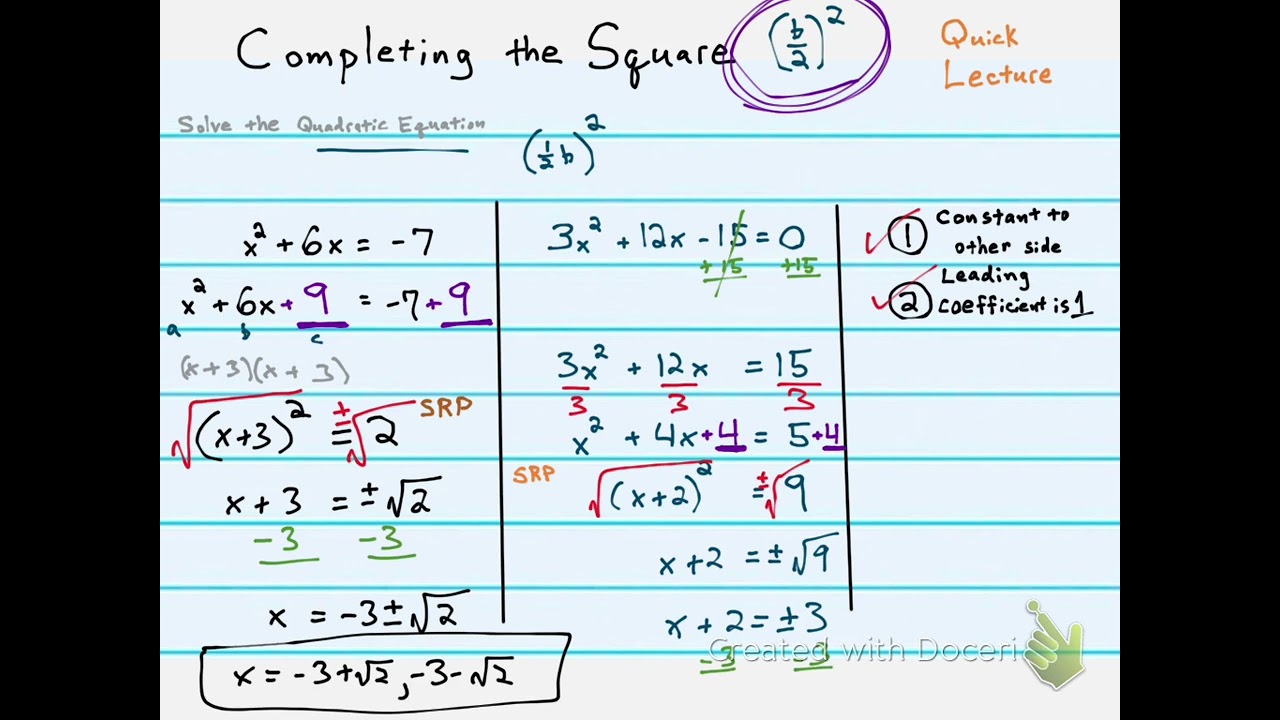 Completing the Square (b/2)²
Quick
Lecture
Solve the Quadratic Equation
(½b)²
x² + 6x = -7
x² + 6x + 9 = -7 + 9
a b c
(x+3)(x+3)
√(x+3)² = ±√2 SRP
x + 3 = ±√2
-3 -3
x = -3 ± √2
x = -3+√2, -3-√2
3x² + 12x - 15 = 0
+15 +15
3x² + 12x = 15
3 3 3
x² + 4x + 4 = 5 + 4
SRP √(x+2)² = ±√9
x + 2 = ±√9
x + 2 = ±3
-3 -3
① Constant to
other side
② Leading
coefficient is 1
Created with Doceri